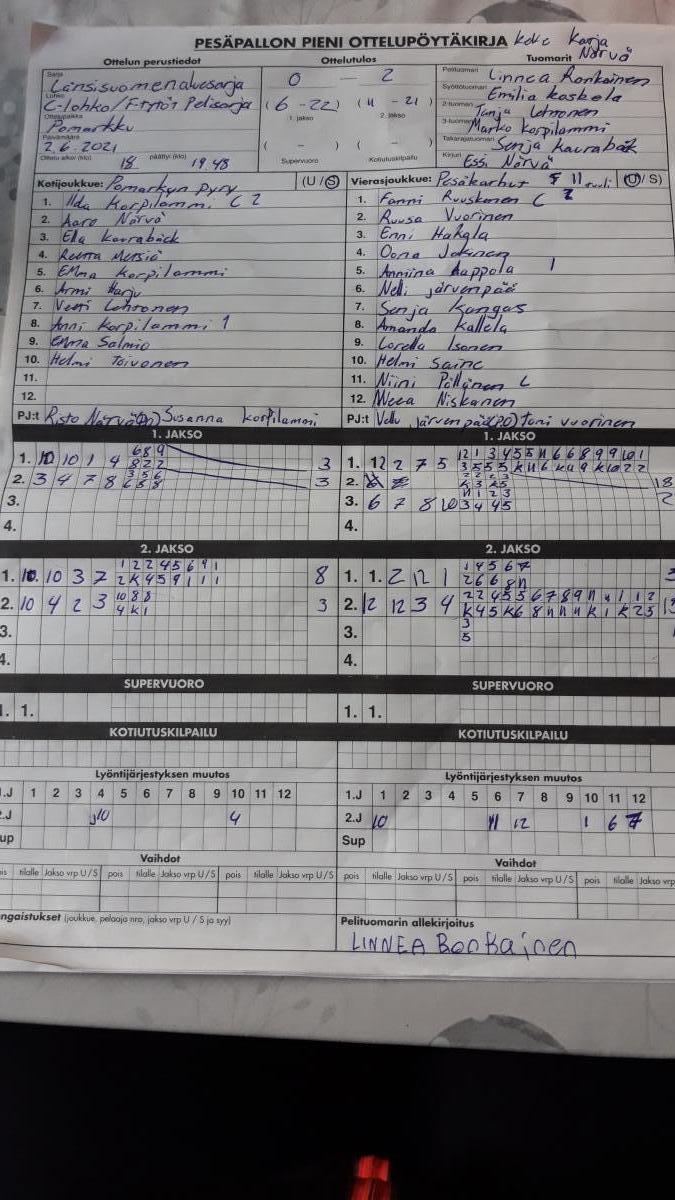 PESÄPALLON PIENI OTTELUPÖYTÄKIRJA Karja Närvä
Ottelun perustiedot Ottelutulos Tuomarit
Sarja Länsisuomenaluesarja 0 — 2 Pelituomari Linnea Ronkainen
Lohko C-lohko/F-tytöt Pelisarja (6 - 22) (11 - 21) Syöttötuomari Emilia Koskela
Ottelupaikka Pomarkku 1. jakso 2. jakso 2-tuomari Tanja Lehtonen
3-tuomari Marko Korpilammi
Päivämäärä 2.6.2021 ( - ) ( - ) Takarajatuomari Senja Kaurabäk
Ottelu alkoi (klo) 18 päättyi (klo) 19.48 Supervuoro Kotiutuskilpailu Kirjuri Essi Närvä
Kotijoukkue: Pomarkun Pyry (U / S) Vierasjoukkue: Pesäkarhut F 11 (U / S)
1. Ilda Korpilammi C 2 1. Fanni Ruuskanen C
2. Aaro Närvä 2. Ruusa Vuorinen
3. Ella Kaurabäck 3. Enni Hakala
4. Reetta 4. Oona Jokinen
5. Emma Korpilammi 5. Anniina Kappola 1
6. Armi Harju 6. Nelli Järvenpää
7. Veeti Lehtonen 7. Senja Kangas
8. Anni Korpilammi 1 8. Amanda Kallela
9. Emma Salmio 9. Lorella Isonen
10. Helmi Toivonen 10. Helmi Saine
11. 11. Niini Pöllänen L
12. 12. Neea Niskanen
PJ:t Risto Närvä Susanna Korpilammi PJ:t Vellu Järvenpää (PD) Toni Vuorinen
1. JAKSO 1. JAKSO
6 8 9 12 1 3 4 5 5 11 6 6 8 9 9 10 1
1. 10 10 1 4 8 2 2 3 1. 12 2 7 5 3 5 5 5 K 11 6 K 11 9 K 10 2 2
2. 3 4 7 8 3 2. 18
3. 3. 6 7 8 10 3 4 4 5 2
4. 4.
2. JAKSO 2. JAKSO
1 2 2 4 5 6 9 1 1 4 5 6 7
1. 10. 10 3 7 2 K 4 5 9 1 1 1 8 1. 1. 2 12 1 2 6 6 8 11
10 8 8 2 2 4 5 5 6 7 8 9 11 11 1 1 2
2. 10 4 2 3 4 K 1 3 2. 12 12 3 4 K 4 5 K 6 8 11 11 11 K 1 K 2 5
3
3. 3. 5
4. 4.
SUPERVUORO SUPERVUORO
1. 1. 1. 1.
KOTIUTUSKILPAILU KOTIUTUSKILPAILU
Lyöntijärjestyksen muutos Lyöntijärjestyksen muutos
1.J 1 2 3 4 5 6 7 8 9 10 11 12 1.J 1 2 3 4 5 6 7 8 9 10 11 12
2.J 10 4 2.J 10 11 12 1 6 7
Sup Sup
Vaihdot Vaihdot
pois tilalle Jakso vrp U / S pois tilalle Jakso vrp U / S pois tilalle Jakso vrp U / S pois tilalle Jakso vrp U / S pois tilalle Jakso vrp U / S pois tilalle Jakso vrp
ngaistukset (joukkue, pelaaja nro, jakso vrp U / S ja syy) Pelituomarin allekirjoitus
LINNEA Ronkainen